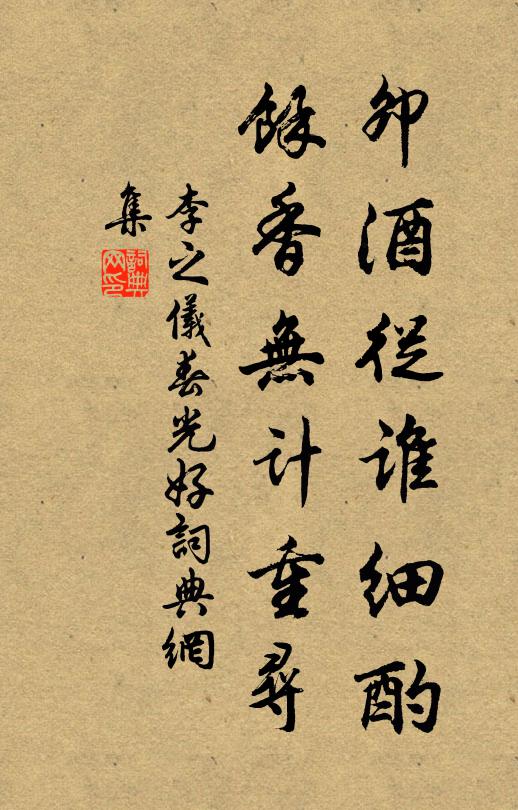 卯酒從誰細酌
餘香無計重尋
李之儀春光好詞典網
集
詞典
网印